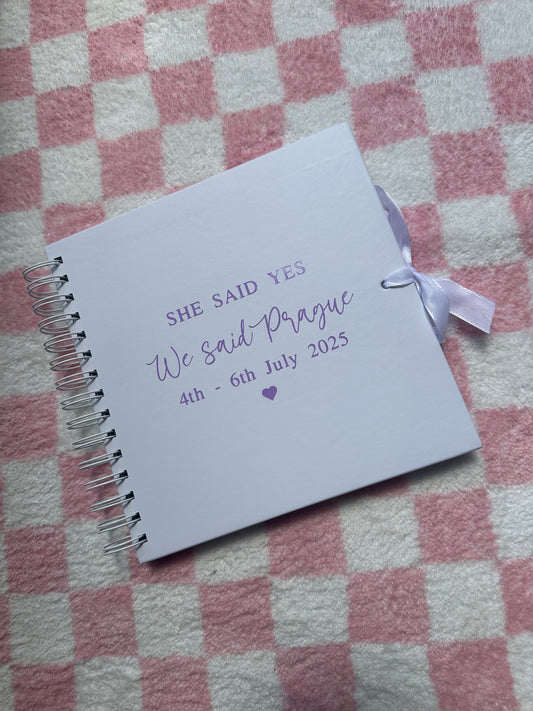 SHE SAID YES
We said Prague
4th - 6th July 2025